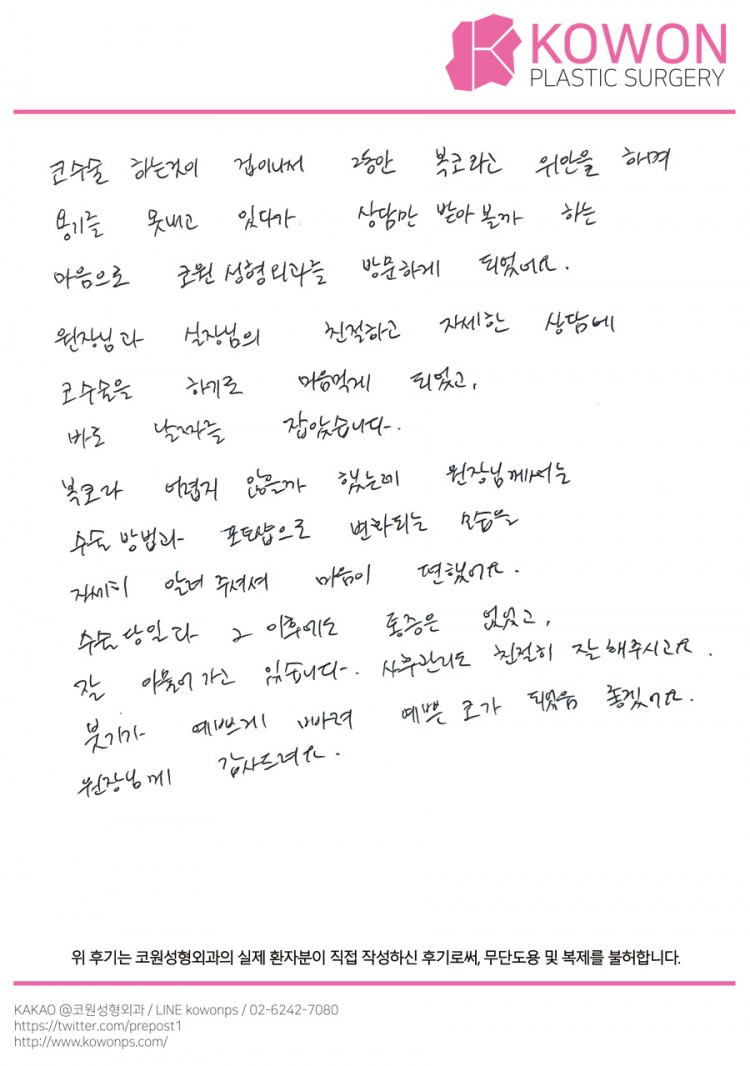 KOWON
PLASTIC SURGERY
코수술 하는것이 겁이나서 그동안 복코라고 위안을 하며
용기를 못내고 있다가 상담만 받아볼까 하는
마음으로 코원성형외과를 방문하게 되었어요.
원장님과 실장님의 친절하고 자세한 상담에
코수술을 하기로 마음먹게 되었고,
바로 날짜를 잡았습니다.
복코라 어렵지 않을까 했는데 원장님께서는
수술방법과 포토샵으로 변화되는 모습을
자세히 알려주셔서 마음이 편했어요.
수술당일과 그 이후에도 통증은 없었고,
잘 아물어가고 있습니다. 사후관리도 친절히 잘해주시고요.
붓기가 예쁘게 빠져 예쁜 코가 되었음 좋겠어요.
원장님께 감사드려요.
위 후기는 코원성형외과의 실제 환자분이 직접 작성하신 후기로써, 무단도용 및 복제를 불허합니다.
KAKAO @코원성형외과 / LINE kowonps / 02-6242-7080
https://twitter.com/prepost1
http://www.kowonps.com/